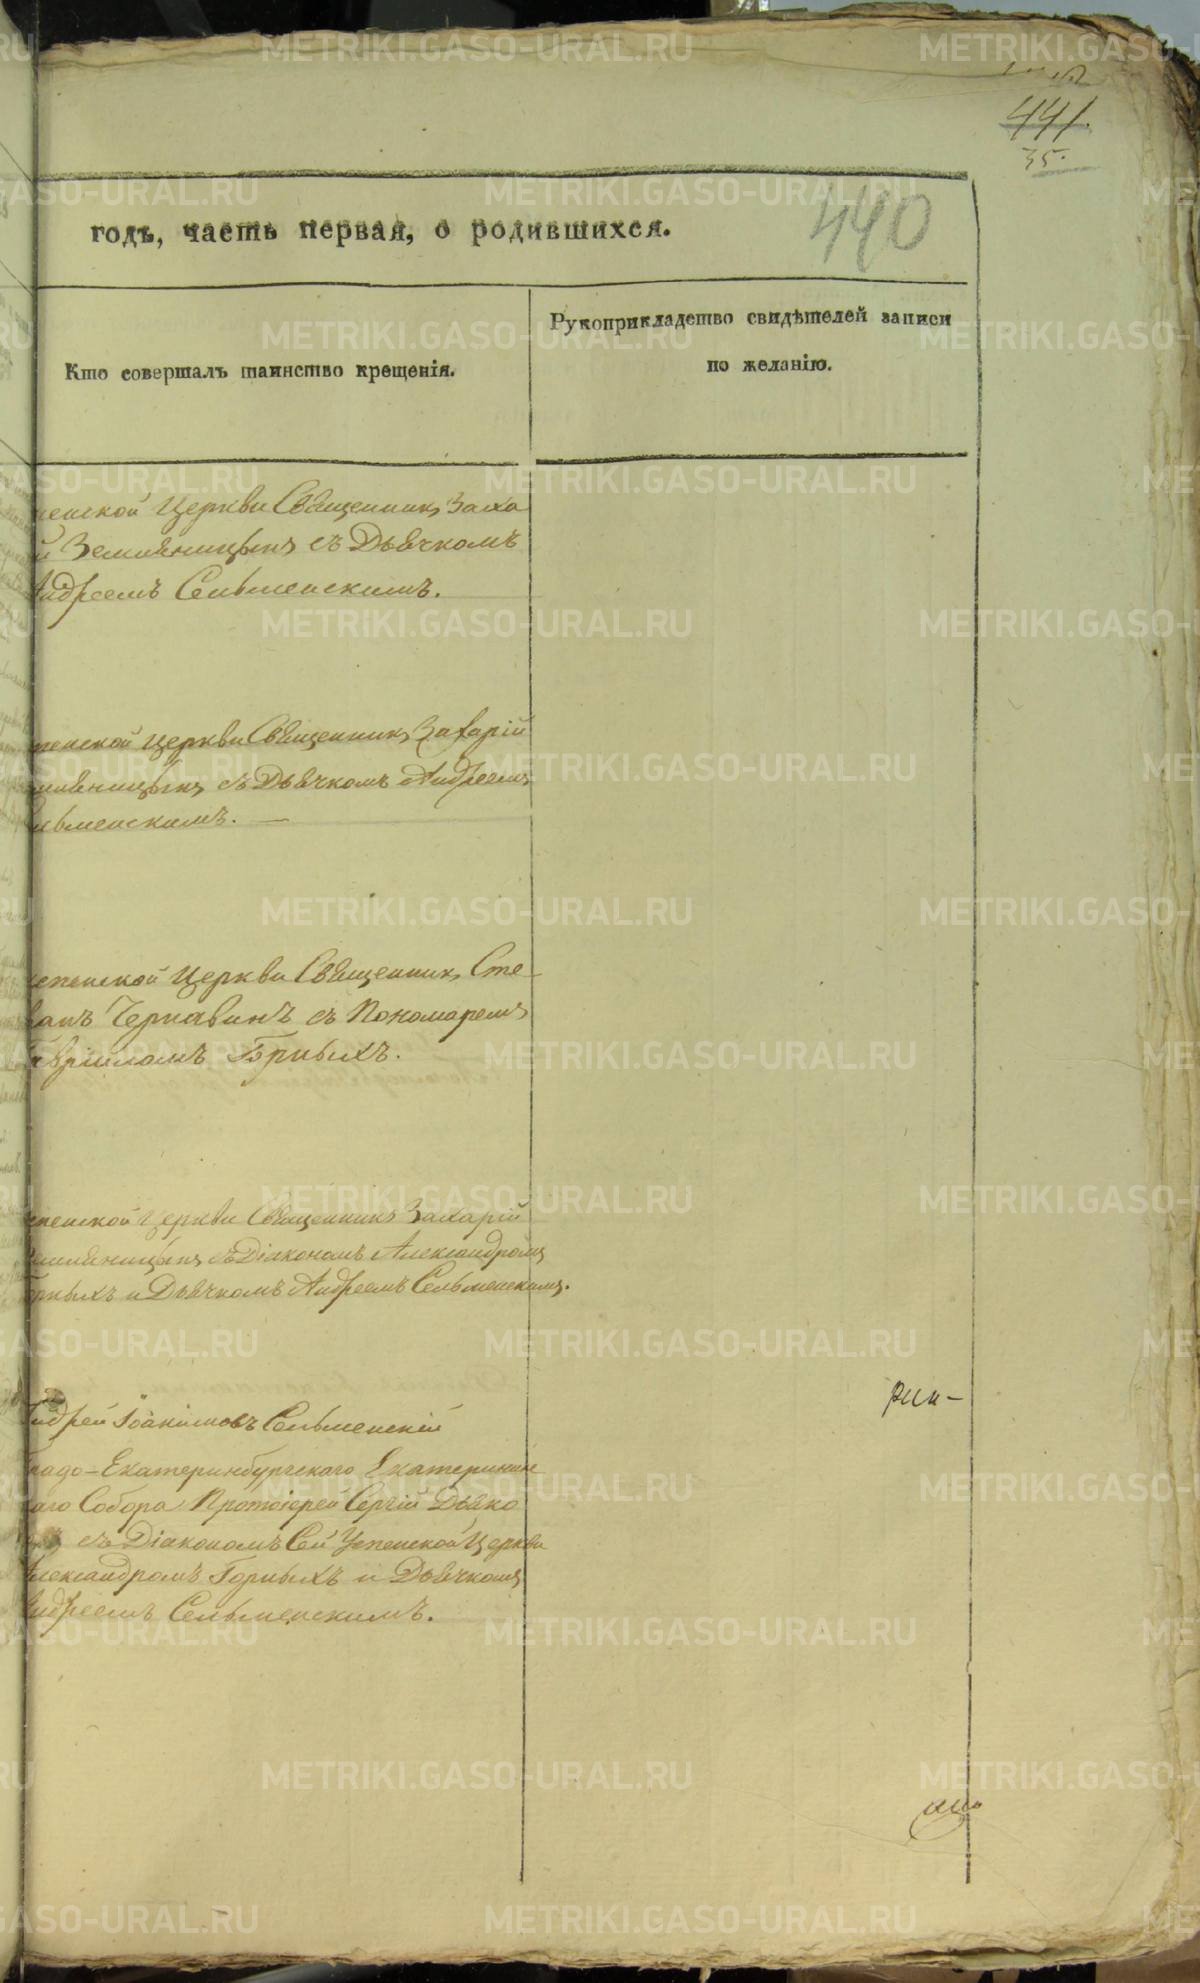 441.
35.
440
годъ, часть первая, о родившихся.
Кто совершалъ таинство крещенія.
Рукоприкладство свидѣтелей записи
по желанію.
пенской Церкви Священникъ Заха
й Земляницынъ съ Дьячкомъ
Андреемъ Сельменскимъ.
пенской Церкви Священникъ Захарій
мляницынъ съ Дьячкомъ Андреемъ
льменскимъ. —
спенской Церкви Священникъ Сте
ванъ Чернавинъ съ Пономаремъ
Гавріиломъ Горныхъ.
спенской Церкви Священникъ Захарій
емляницынъ съ Діакономъ Александромъ
орныхъ и Дьячкомъ Андреемъ Сельменскимъ.
Андрей Іоакимовъ Сельменскій
Градо-Екатеринбургскаго Екатеринин
каго Собора Протоіерей Сергій Дьяко
съ Діакономъ Сей Успенской Церкви
Александромъ Горныхъ и Дьячкомъ
Андреемъ Сельменскимъ.
METRIKI.GASO-URAL.RU